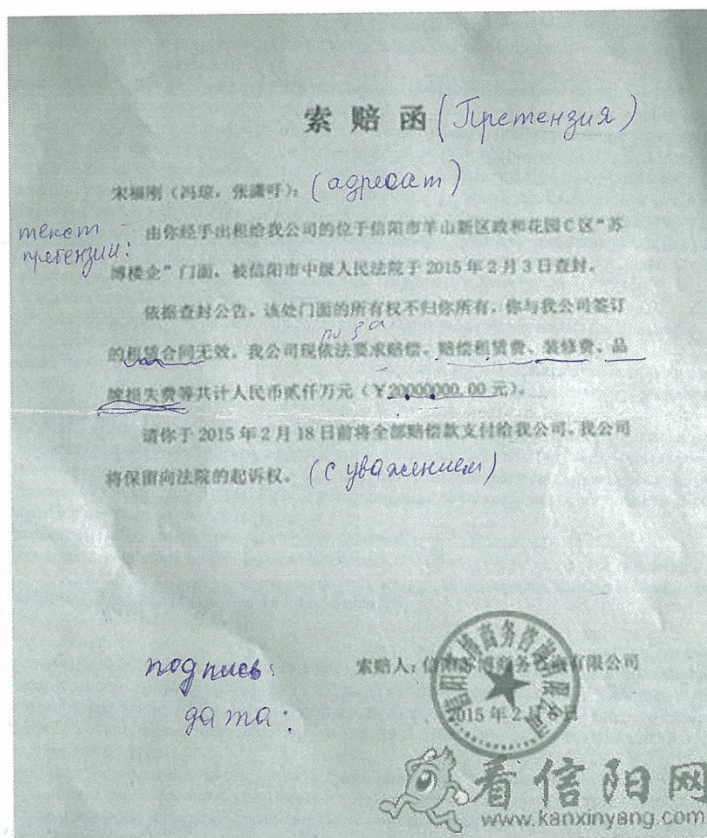 索赔函 (Претензия)
宋福刚(冯琼、张潇吁): (адресат)
текст претензии:
由你经手出租给我公司的位于信阳市羊山新区政和花园C区“苏
博楼企”门面,被信阳市中级人民法院于2015年2月3日查封。
依据查封公告,该处门面的所有权不归你所有,你与我公司签订
по за
的租赁合同无效。我公司现依法要求赔偿、赔偿租赁费、装修费、品
牌损失费等共计人民币贰仟万元(¥20000000.00元)。
请你于2015年2月18日前将全部赔偿款支付给我公司,我公司
将保留向法院的起诉权。 (с уважением)
подпись: 索赔人:信阳苏博商务咨询有限公司
дата: 2015年2月 日
信阳苏博商务咨询有限公司
看信阳网
www.kanxinyang.com